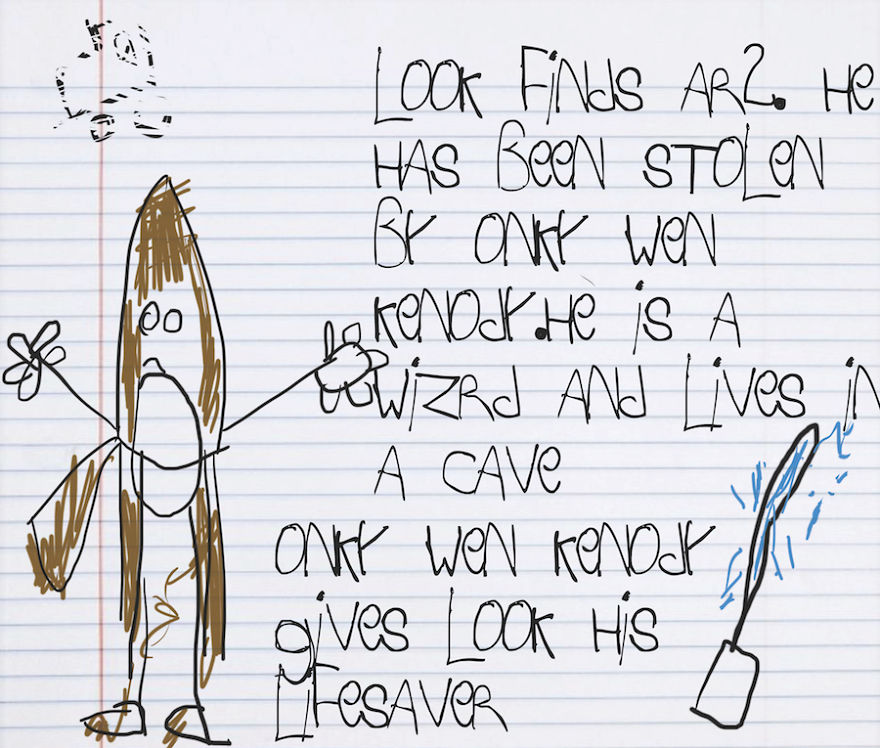 LOOK FiNdS AR2. HE
HAS BeeN STOLeN
BY ONKY WeN
KeNOdY.He iS A
WiZRd ANd LiVeS iN
A CAVe
ONKY WeN KeNOdY
giVeS LOOK HiS
LiFeSAVeR